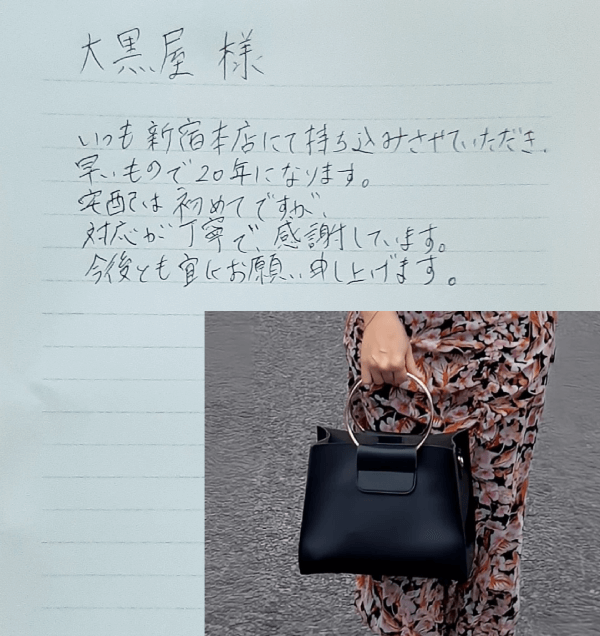 大黒屋 様
いつも新宿本店にて持ち込みさせていただき、
早いもので20年になります。
宅配では初めてですが、
対応が丁寧で、感謝しています。
今後とも宜にお願い申し上げます。